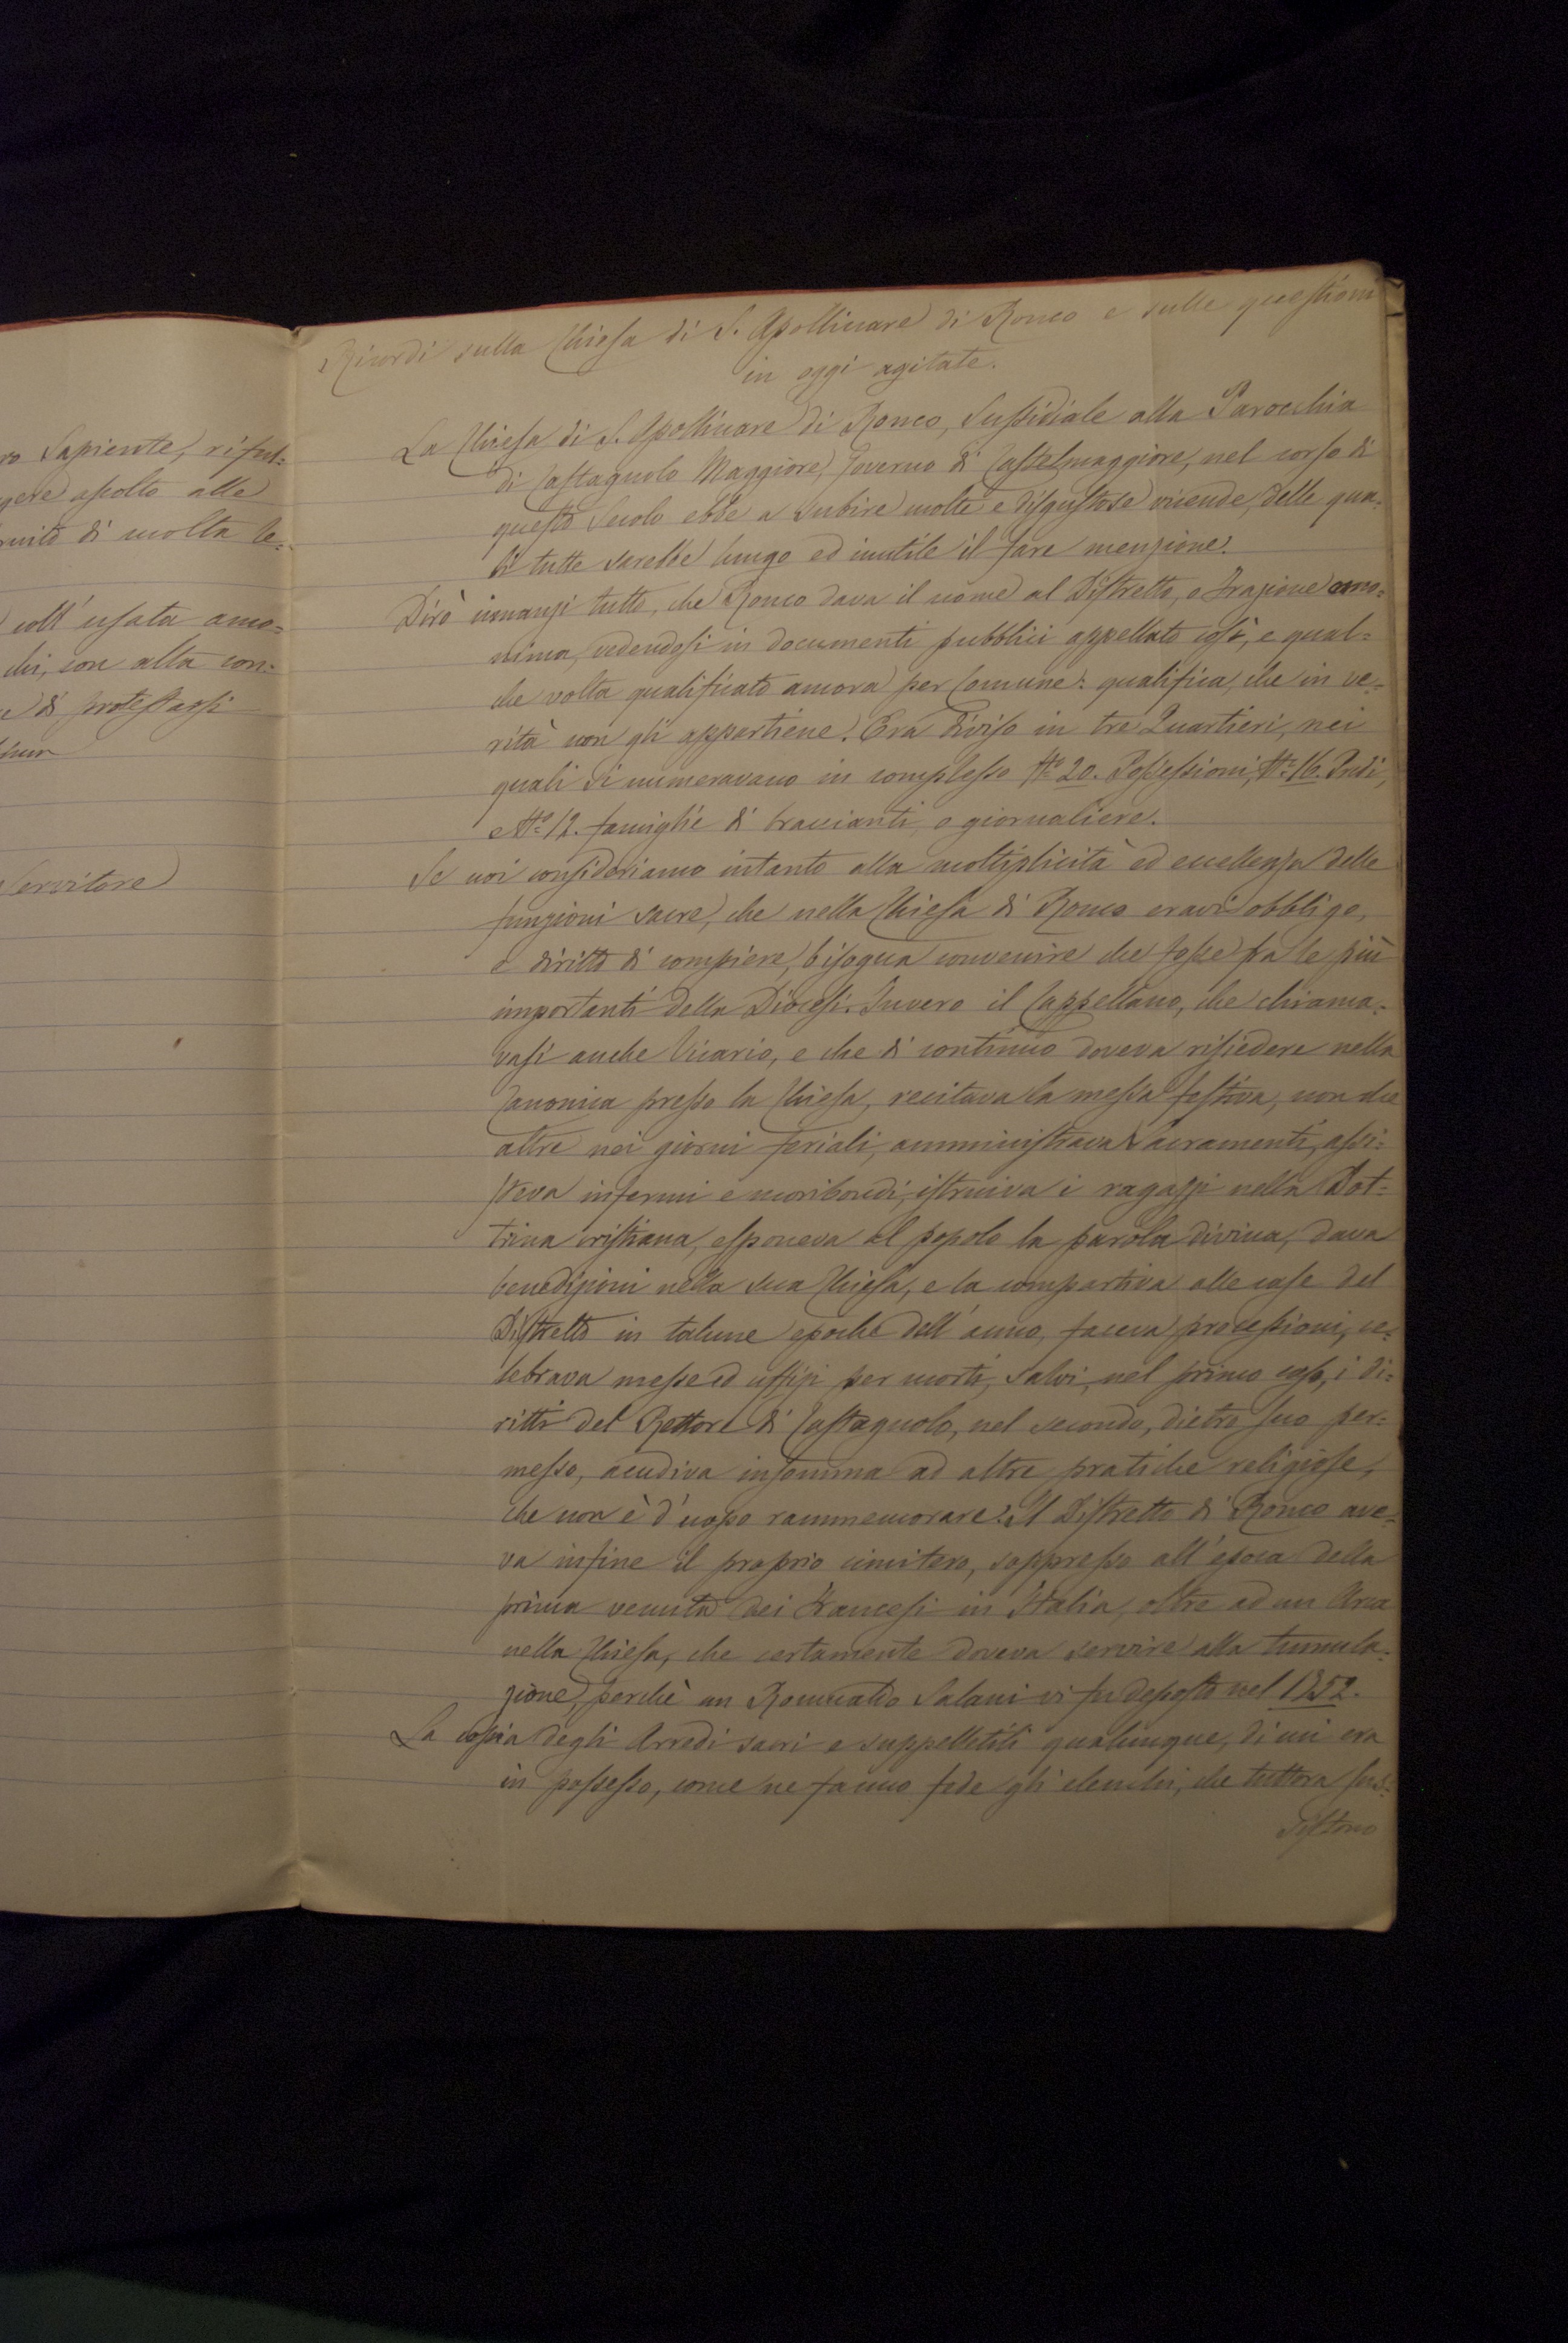 ro Sapiente, rifiu=
gere ascolto alle
rnito di molta le=
coll' usata amo=
chi, con alta con=
e di protestarsi
Servitore
Ricordi sulla Chiesa di S. Apollinare di Ronco e sulle questioni
in oggi agitate.
La Chiesa di S. Apollinare di Ronco, Sussidiale alla Parocchia
di Castagnolo Maggiore, Governo di Castelmaggiore, nel corso di
questo Secolo ebbe a subire molte e disgustose vicende, delle qua=
li tutte sarebbe lungo ed inutile il fare menzione.
Dirò innanzi tutto, che Ronco dava il nome al Distretto, o Frazione omo=
nima, vedendosi in documenti pubblici appellato così, e qual=
che volta qualificato ancora per Comune: qualifica, che in ve=
rità non gli appartiene. Era diviso in tre Quartieri, nei
quali si numeravano in complesso N.° 20. Possessioni, N.° 16. Predi,
e N.° 12. famiglie di braccianti, o giornaliere.
Se noi consideriamo intanto alla moltiplicità ed eccellenza delle
funzioni sacre, che nella Chiesa di Ronco eravi obbligo,
e diritto di compiere, bisogna convenire che fosse fra le più
importanti della Diocesi. Invero il Cappellano, che chiama=
vasi anche Vicario, e che di continuo doveva risiedere nella
Canonica presso la Chiesa, recitava la messa festiva, non che
altre nei giorni feriali, amministrava Sacramenti, assi=
steva infermi e moribondi, istruiva i ragazzi nella Dot=
trina cristiana, esponeva al popolo la parola divina, dava
benedizioni nella sua Chiesa, e la compartiva alle case del
Distretto in talune epoche dell' anno, faceva processioni, ce=
lebrava messe ed uffizi per morti, salvi, nel primo caso, i di=
ritti del Rettore di Castagnolo, nel secondo, dietro suo per=
messo, acudiva insomma ad altre pratiche religiose,
che non è d'uopo rammemorare. Il Distretto di Ronco ave=
va infine il proprio cimitero, soppresso all' epoca della
prima venuta dei Francesi in Italia, oltre ad un Arca
nella Chiesa, che certamente doveva servire alla tumula=
zione, perchè un Romualdo Salani vi fu deposto nel 1352.
La copia degli Arredi sacri e suppelletili qualunque, di cui era
in possesso, come ne fanno fede gli elenchi, che tuttora sus=
sistono